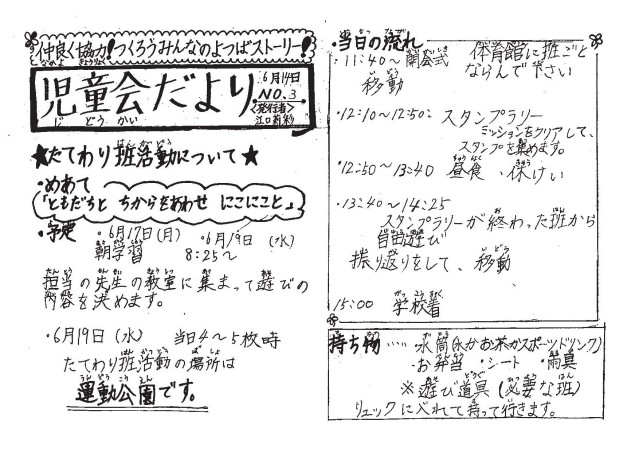 仲良く協力!つくろうみんなのよつばストーリー!
児童会だより
じどうかい
6月14日
NO.3
<発行者>
★たてわり班活動について★
・めあて
「ともだちと ちからをあわせ にこにこと」
・予定
・6月17日(月) ・6月19日(水)
朝学習 8:25~
担当の先生の教室に集まって遊びの
内容を決めます。
・6月19日(水) 当日4~5校時
たてわり班活動の場所は
運動公園です。
・当日の流れ
・11:40~ 開会式 体育館に班ごと
移動 ならんで下さい
・12:10~12:50: スタンプラリー
ミッションをクリアして、
スタンプを集めます。
・12:50~13:40 昼食・休けい
・13:40~14:25
スタンプラリーが終わった班から
自由遊び
振り返りをして、移動
15:00 学校着
持ち物……・水筒(水かお茶かスポーツドリンク)
・お弁当・シート・雨具
※遊び道具(必要な班)
リュックに入れて持って行きます。